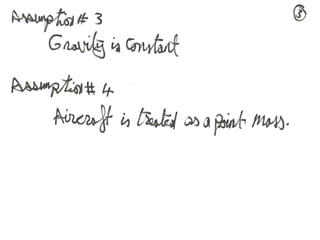 Assumption # 3
③
Gravity is Constant
Assumption # 4
Aircraft is treated as a point mass.